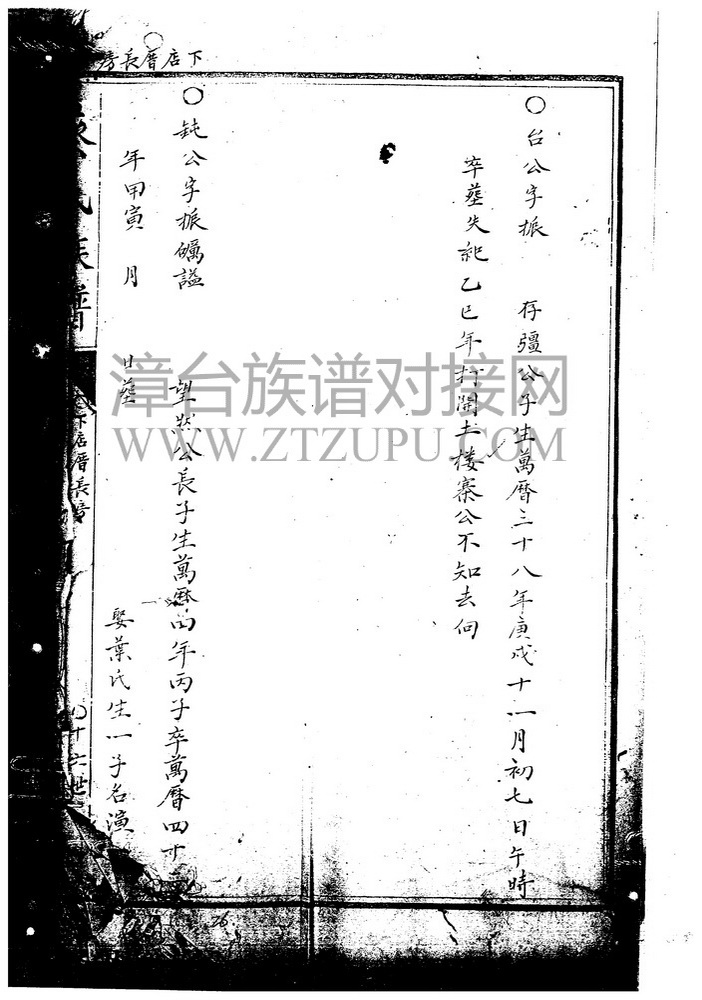 下店厝長房
○台公字振 存彊公子生萬曆三十八年庚戌十一月初七日午時
卒塟失祀乙巳年打開土樓寨公不知去何
○鈍公字振礪謚 望然公長子生萬曆四年丙子卒萬曆四十
年甲寅 月 日塟 娶葉氏生一子名演
氏族譜
下店厝長房
十六世
漳台族谱对接网
WWW.ZTZUPU.COM